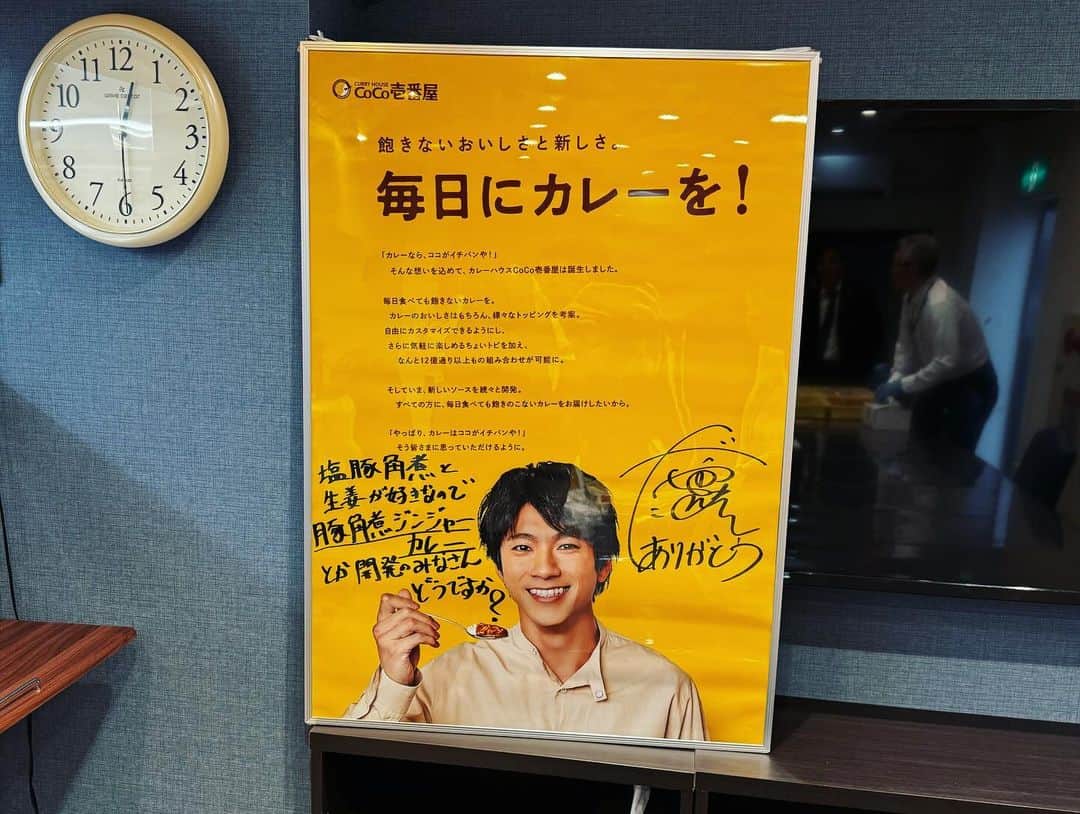 12
1
2
3
4
5
6
7
8
9
10
11
CURRY HOUSE
CoCo壱番屋
飽きないおいしさと新しさ。
毎日にカレーを!
「カレーなら、ココがイチバンや!」
そんな想いを込めて、カレーハウスCoCo壱番屋は誕生しました。
毎日食べても飽きないカレーを。
カレーのおいしさはもちろん、様々なトッピングを考案。
自由にカスタマイズできるようにし、
さらに気軽に楽しめるちょいトピを加え、
なんと12億通り以上もの組み合わせが可能に。
そしていま、新しいソースを続々と開発。
すべての方に、毎日食べても飽きのこないカレーをお届けしたいから。
「やっぱり、カレーはココがイチバンや!」
そう皆さまに思っていただけるように。
塩豚角煮と
生姜が好きなので
豚角煮ジンジャー
カレー
とか開発のみなさん
どうですか?
ありがとう